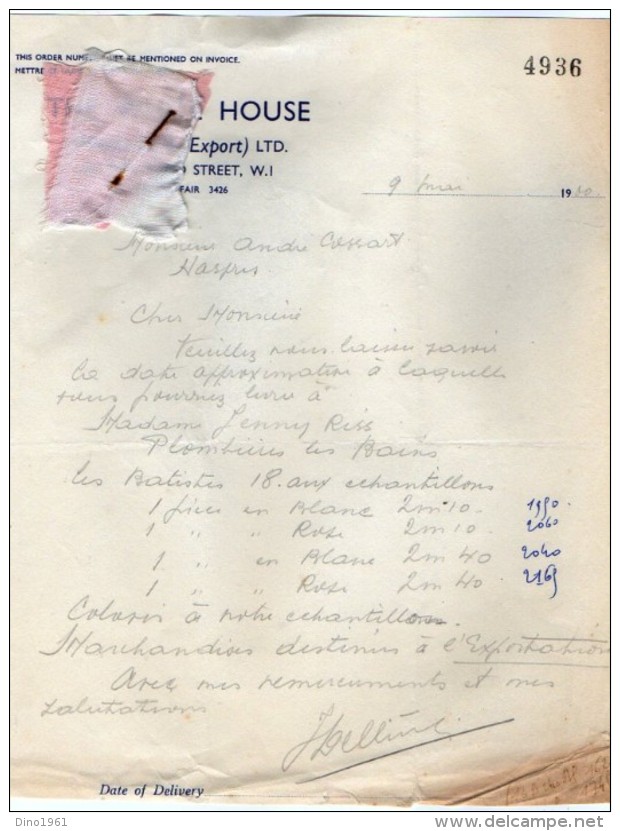 THIS ORDER MENTIONED ON INVOICE.
4936
HOUSE
Export) LTD.
STREET, W.1
FAIR 3426
9 mai 19
Monsieur André Cossart
Haspres
Cher Monsieur
Veuillez nous laisser savoir
la date approximative à laquelle
vous pourrez livrer à
Madame Jenny Riss
Plombières les Bains
les Batistes 18. aux echantillons
1 pièce en Blanc 2m.10. 1950.
1 " " Rose 2m10. 2060
1. " en Blanc 2m40 2040
1 " " Rose 2m40. 2165
Coloris à notre echantillon.
Marchandises destinées à l'Exportation
Avec mes remerciements et mes
salutations
Date of Delivery
Dino1961